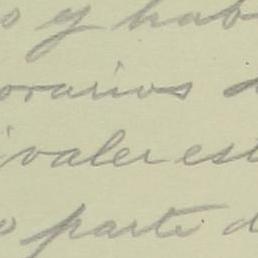 o y hab
orarios d
ivaler est
o parte d